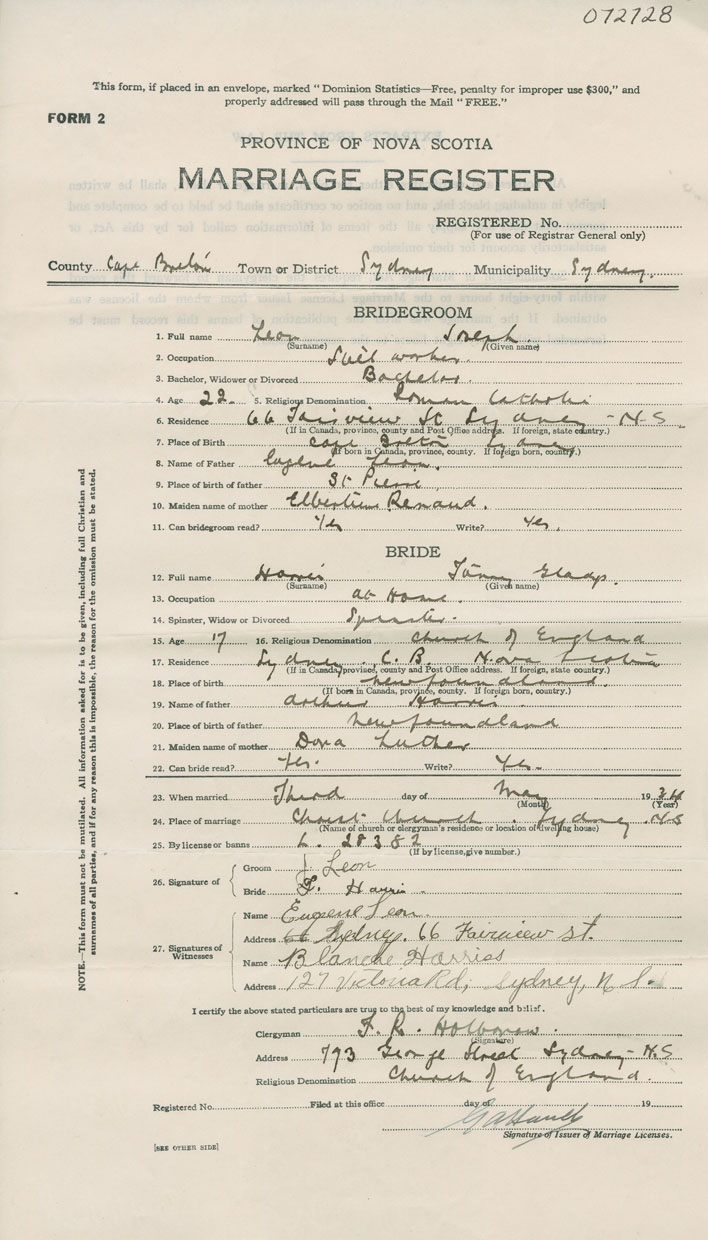 072728
This form, if placed in an envelope, marked "Dominion Statistics—Free, penalty for improper use $300," and
properly addressed will pass through the Mail "FREE."
FORM 2
PROVINCE OF NOVA SCOTIA
MARRIAGE REGISTER
REGISTERED No.
(For use of Registrar General only)
County Cape Breton Town or District Sydney Municipality Sydney.
BRIDEGROOM
1. Full name Leon Joseph.
(Surname) (Given name)
2. Occupation worker.
3. Bachelor, Widower or Divorced Bachelor.
4. Age 22. 5. Religious Denomination Roman Catholic
6. Residence 66 Fairview St Sydney - N.S
(If in Canada, province, county and Post Office address. If foreign, state country.)
7. Place of Birth Cape Breton Sydney
(If born in Canada, province, county. If foreign born, country.)
8. Name of Father Eugene Leon.
9. Place of birth of father St Pierre
10. Maiden name of mother Renaud.
11. Can bridegroom read? Yes Write? Yes.
BRIDE
12. Full name Harris Fanny Gladys.
(Surname) (Given name)
13. Occupation at Home.
14. Spinster, Widow or Divorced Spinster.
15. Age 17 16. Religious Denomination Church of England
17. Residence Sydney. C.B. Nova Scotia
(If in Canada, province, county and Post Office address. If foreign, state country.)
18. Place of birth Newfoundland.
(If born in Canada, province, county. If foreign born, country.)
19. Name of father Arthur Harris
20. Place of birth of father Newfoundland
21. Maiden name of mother Dora Luther
22. Can bride read? Yes. Write? Yes.
23. When married Third day of May 1934
(Month) (Year)
24. Place of marriage Christ Church. Sydney. N.S
(Name of church or clergyman's residence or location of dwelling house)
25. By license or banns L. 28382
(If by license, give number.)
26. Signature of
Groom J Leon
Bride F. Harris.
27. Signatures of Witnesses
Name Eugene Leon
Address 66 Sydney. 66 Fairview St.
Name Blanche Harriss
Address 127 Victoria Rd, Sydney, N.S.
I certify the above stated particulars are true to the best of my knowledge and belief.
Clergyman F. R.
(Signature)
Address 793 George Street Sydney - N.S
Religious Denomination Church of England.
Registered No. Filed at this office day of 19
Signature of Issuer of Marriage Licenses.
[SEE OTHER SIDE]
NOTE.—This form must not be mutilated. All information asked for is to be given, including full Christian and
surnames of all parties, and if for any reason this is impossible, the reason for the omission must be stated.